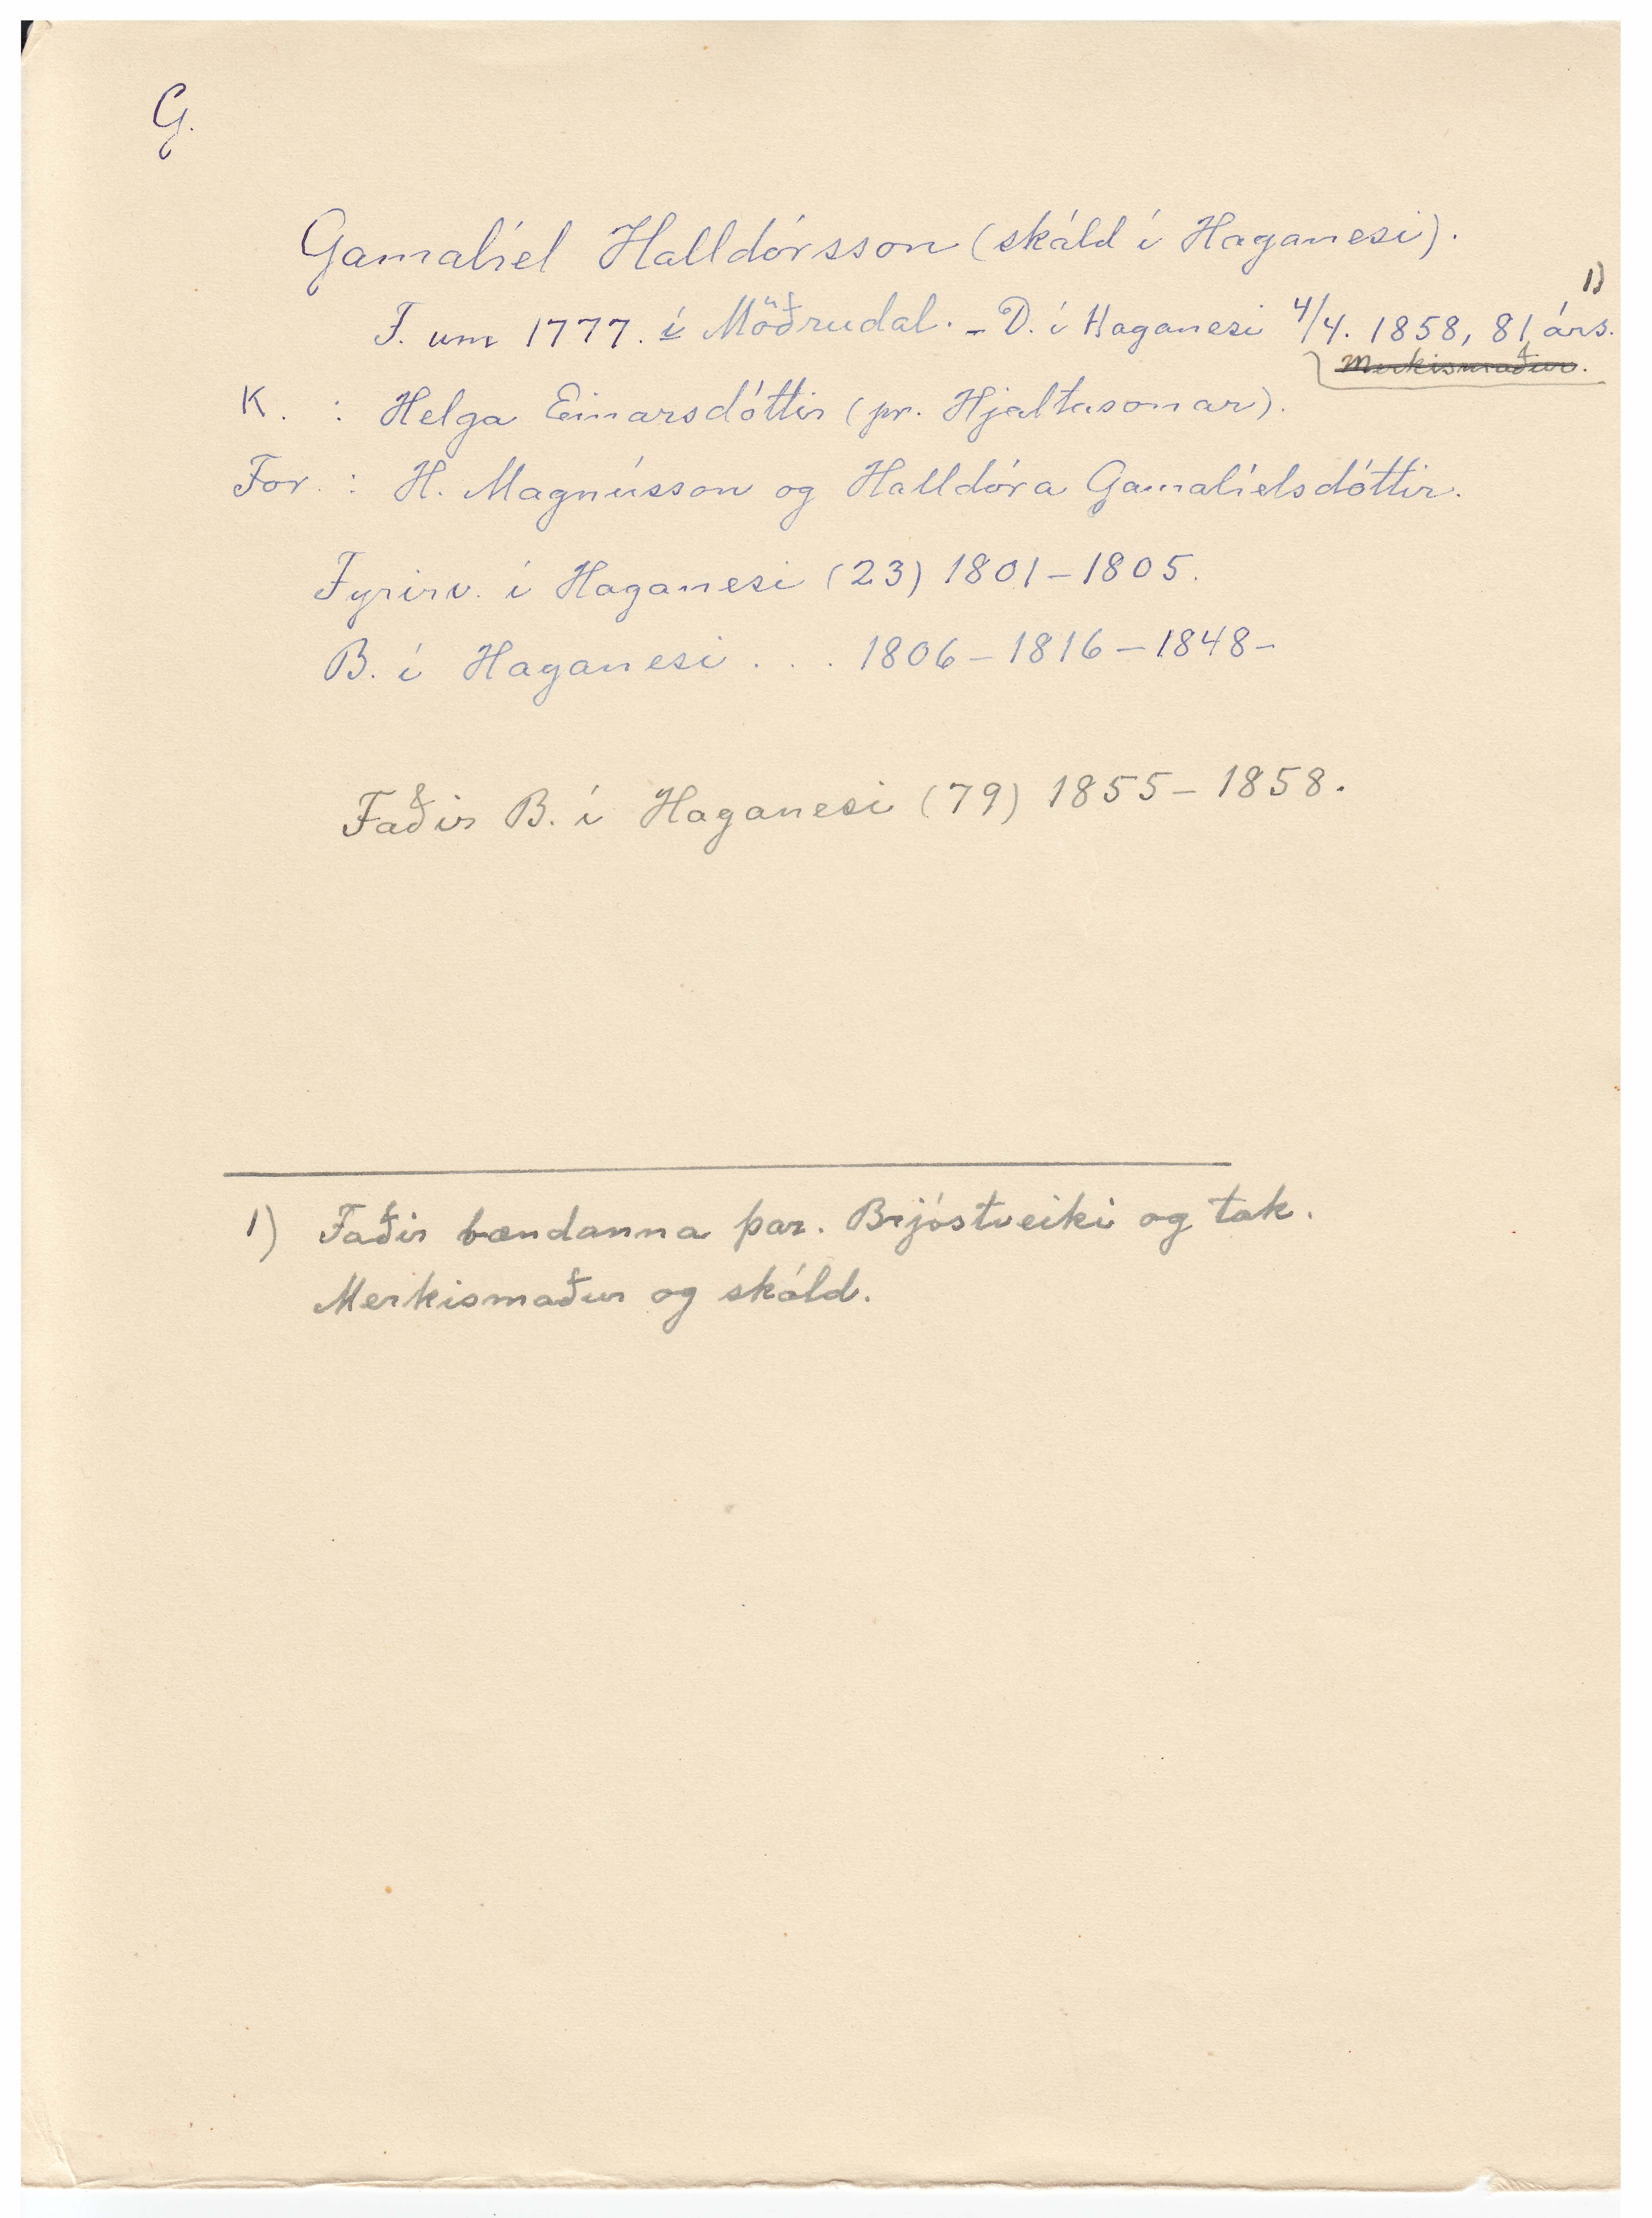 G.
Gamalíel Halldórsson (skáld í Haganesi).
F. um 1777. í Möðrudal. - D. í Haganesi 4/4. 1858, 81 árs. 1)
Merkismaður.
K. : Helga Einarsdóttir (pr. Hjaltasonar).
For. : H. Magnússon og Halldóra Gamalíelsdóttir.
Fyrirv. í Haganesi (23) 1801-1805.
B. í Haganesi . . . 1806-1816-1848-
Faðir B. í Haganesi (79) 1855-1858.
1) Faðir bændanna þar. Brjóstveiki og tak.
Merkismaður og skáld.